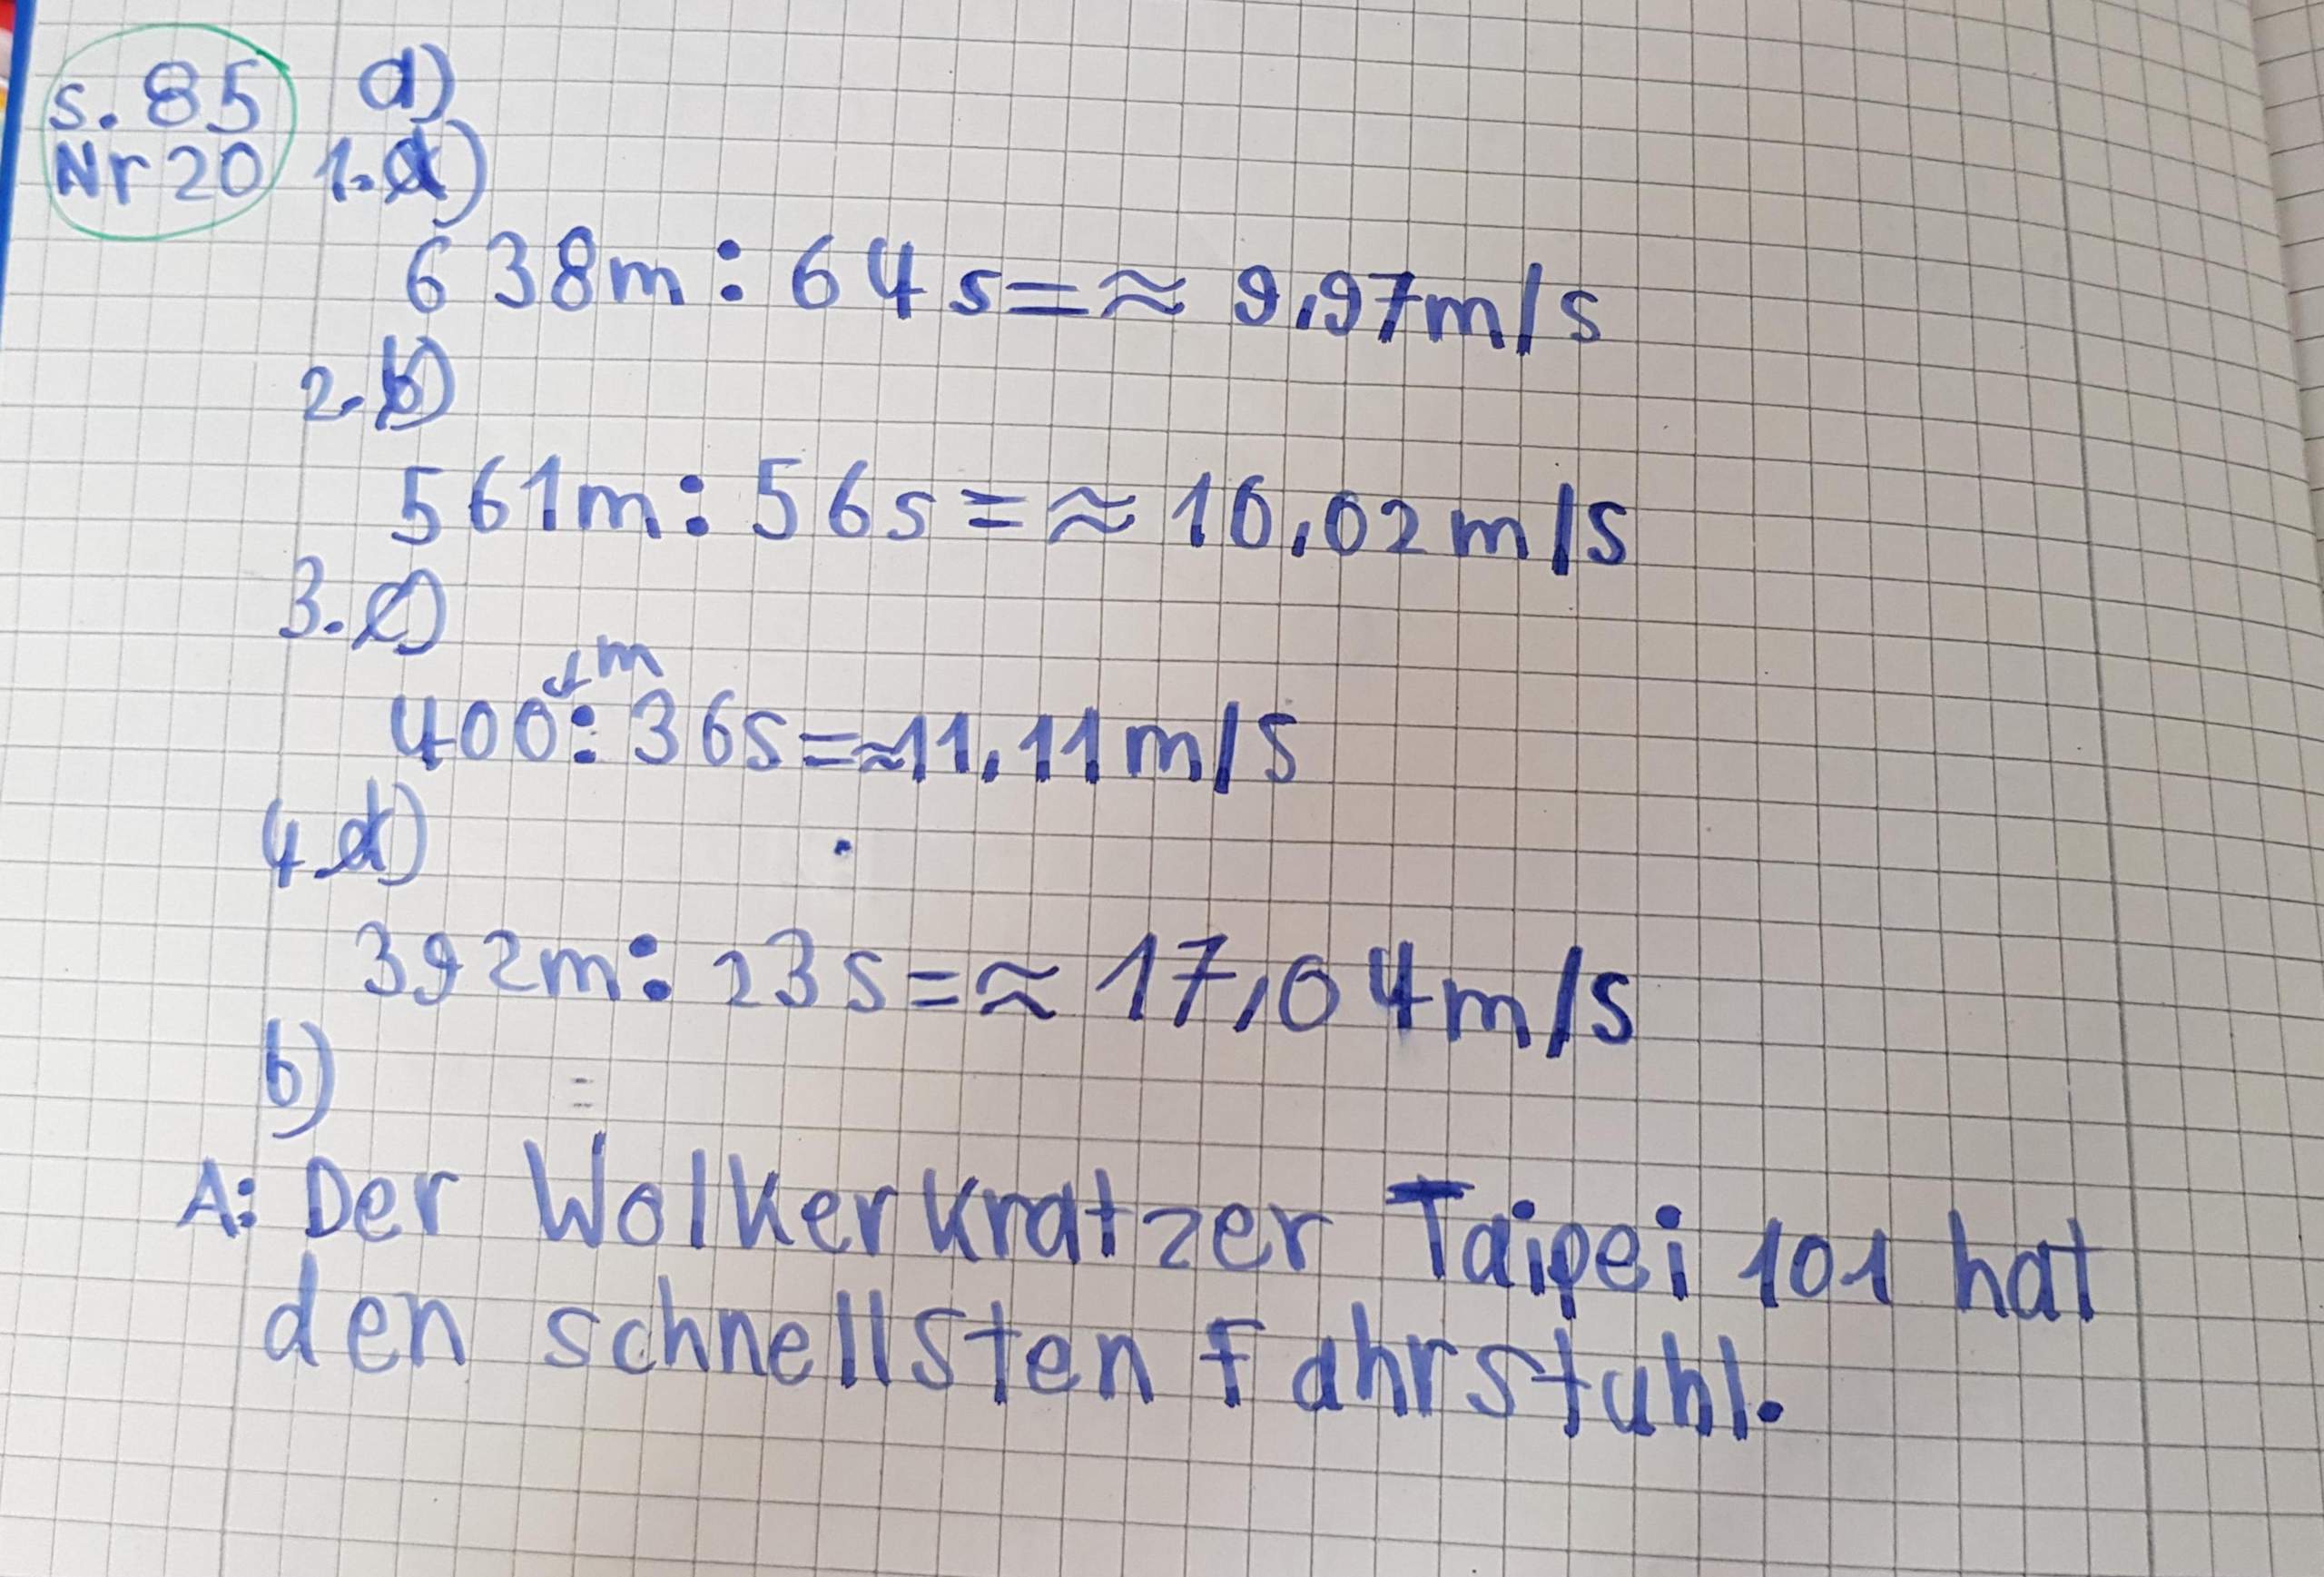 s. 85 a)
Nr 20 1. a)
638m : 64s = ≈ 9,97m/s
2. b)
561m : 56s = ≈ 10,02m/s
3. c)
m
400 : 36s = ≈ 11,11m/s
4. d)
392m : 23s = ≈ 17,04m/s
b)
A: Der Wolkerkratzer Taipei 101 hat
den schnellsten Fahrstuhl.